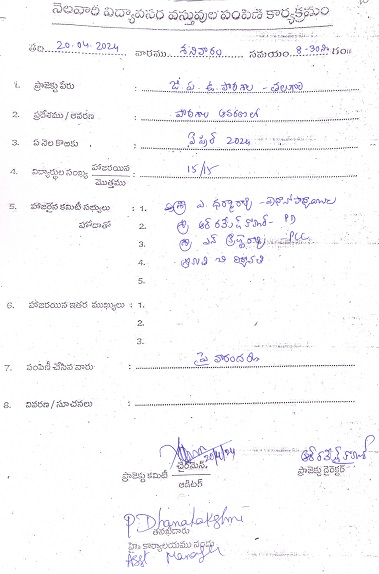 నెలవారీ విద్యావసర వస్తువుల పంపిణీ కార్యక్రమం
తేది 20.04.2024 వారము శనివారం సమయం. 8.30 గం॥
1. ప్రాజెక్టు పేరు : జి. ప. ఉ. పాఠశాల -
2. ప్రదేశము / ఆవరణ : పాఠశాల ఆవరణలో
3. ఏ నెల కొరకు : ఏప్రిల్ 2024
4. విద్యార్థుల సంఖ్య హాజరయిన / మొత్తము : 15/15
5. హాజరైన కమిటీ సభ్యులు : 1. శ్రీ ఎ. ధర్మారావు - ప్రధానోపాధ్యాయులు
హోదాతో 2. శ్రీ ఆర్ రమేష్ కుమార్ - PD
3. శ్రీ ఎన్
4. శ్రీమతి
5.
6. హాజరయిన ఇతర ముఖ్యులు : 1.
2.
3.
7. పంపిణీ చేసిన వారు : పై వారందరు
8. వివరణ / సూచనలు :
20/4/24
చైర్మెన్. ఆర్ రమేష్ కుమార్
ప్రాజెక్టు కమిటీ ఆడిటర్ ప్రాజెక్టు డైరెక్టర్
P Dhanalakshmi
తనిఖీదారు
హెచ్ కార్యాలయము నందు
Asst Manager